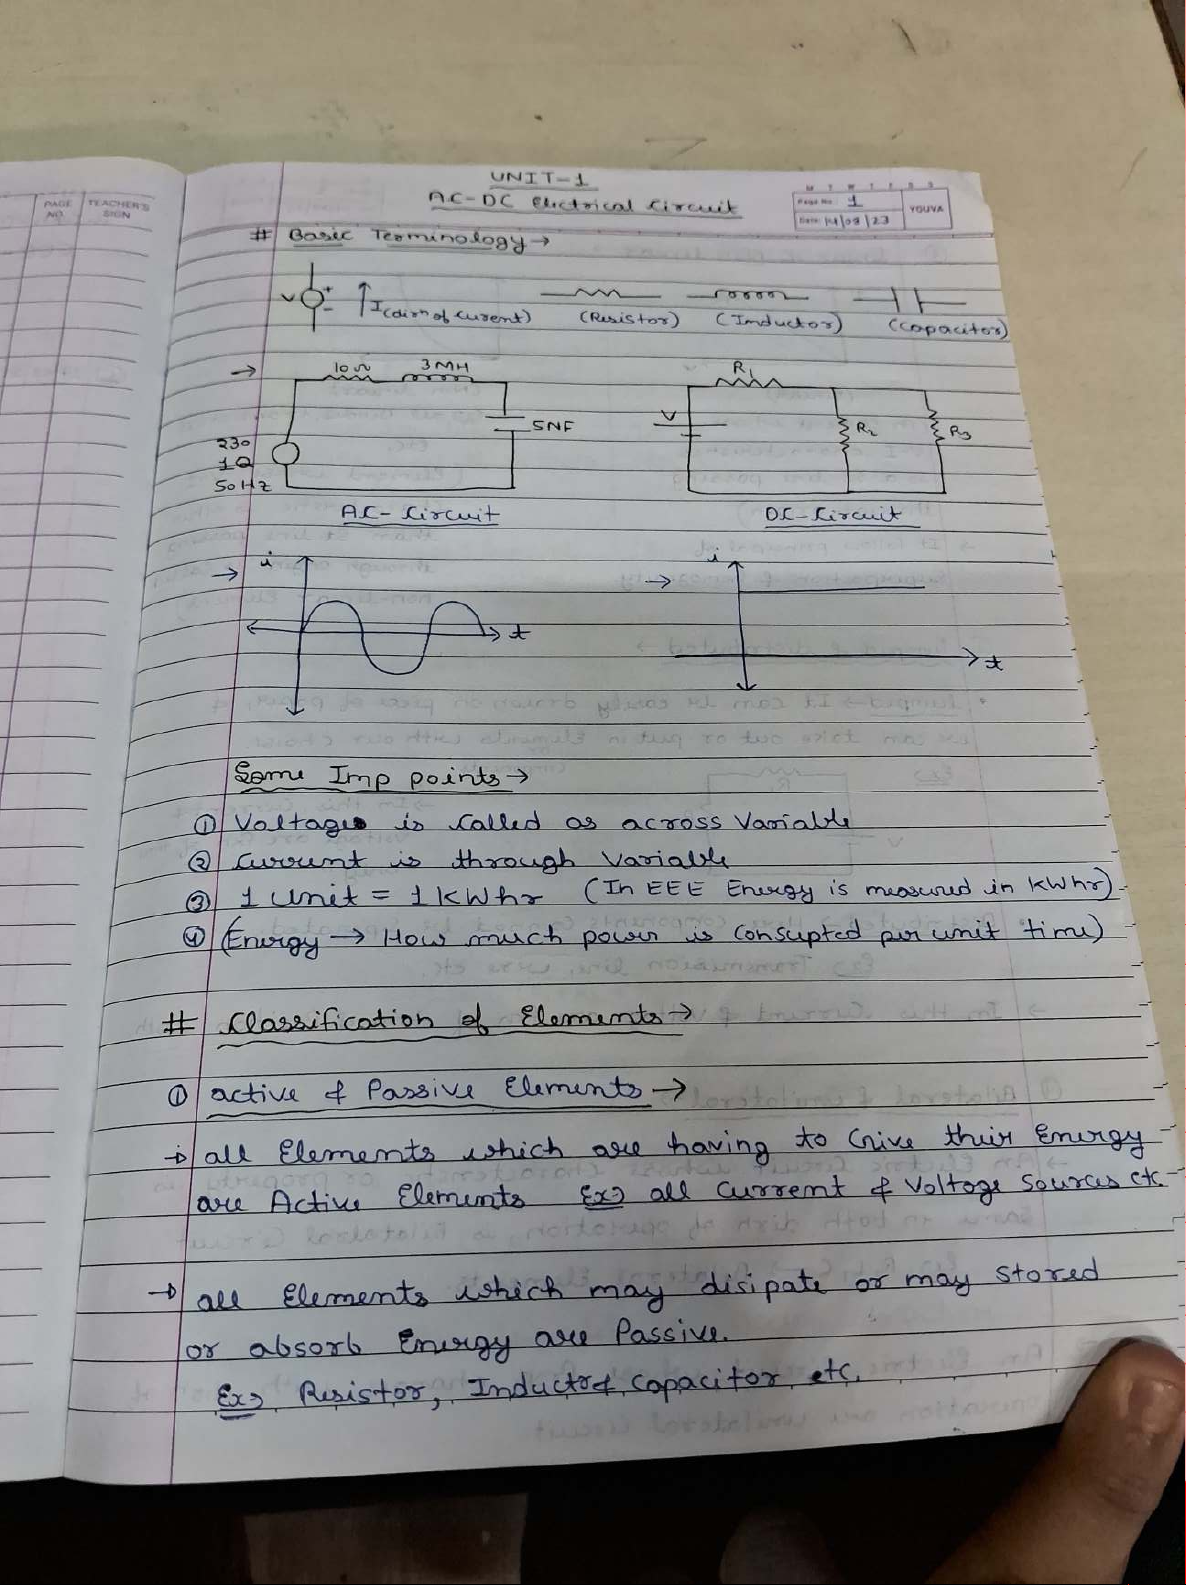 PAGE NO.
TEACHER'S SIGN
UNIT-1
AC-DC Electrical Circuit
M T W T F S S
Page No.: 1
Date: 14/09/23
YOUVA
# Basic Terminology →
V + -
I (dirn of curent)
(Resistor)
(Inductor)
(Capacitor)
→ 10Ω 3MH
5NF
230
1Φ
50Hz
AC-Circuit
R1
V
R2
R3
DC-Circuit
→ i
t
→ i
t
Some Imp points →
① Voltage is called as across Variable
② Current is through Variable
③ 1 Unit = 1 kWhr (In EEE Energy is measured in kWhr)
④ (Energy → How much power is Consupted per unit time)
# Classification of Elements →
① active & Passive Elements →
→ all Elements which are having to Give their Energy
are Active Elements Ex> all Current & Voltage Sources etc.
→ all Elements which may disipate or may stored
or absorb Energy are Passive.
Ex> Resistor, Inductor, Capacitor etc.